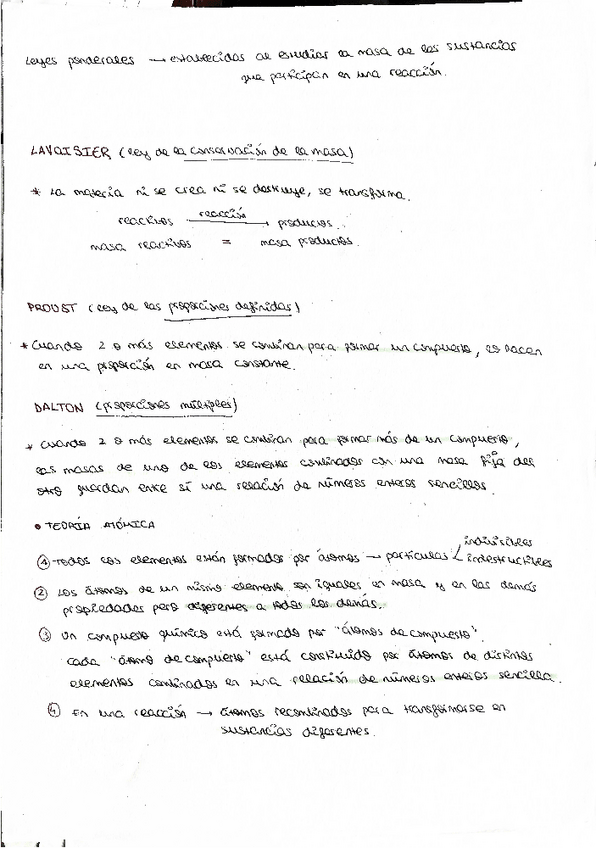 Leyes ponderales → establecidas al estudiar la masa de las sustancias
que participan en una reacción.
LAVOISIER (ley de la conservación de la masa)
* La materia ni se crea ni se destruye, se transforma.
reactivos reacción → productos.
masa reactivos = masa productos.
PROUST (ley de las proporciones definidas)
* Cuando 2 o más elementos se combinan para formar un compuesto, lo hacen
en una proporción en masa constante.
DALTON (proporciones múltiples)
* Cuando 2 o más elementos se combinan para formar más de un compuesto,
las masas de uno de los elementos combinados con una masa fija del
otro guardan entre sí una relación de números enteros sencillos.
• TEORÍA ATÓMICA
① Todos los elementos están formados por átomos → partículas < indivisibles
indestructibles
② Los átomos de un mismo elemento son iguales en masa y en las demás
propiedades pero diferentes a todos los demás.
③ Un compuesto químico está formado por "átomos de compuesto".
Cada "átomo de compuesto" está constituido por átomos de distintos
elementos combinados en una relación de números enteros sencilla.
④ En una reacción → átomos recombinados para transformarse en
sustancias diferentes.